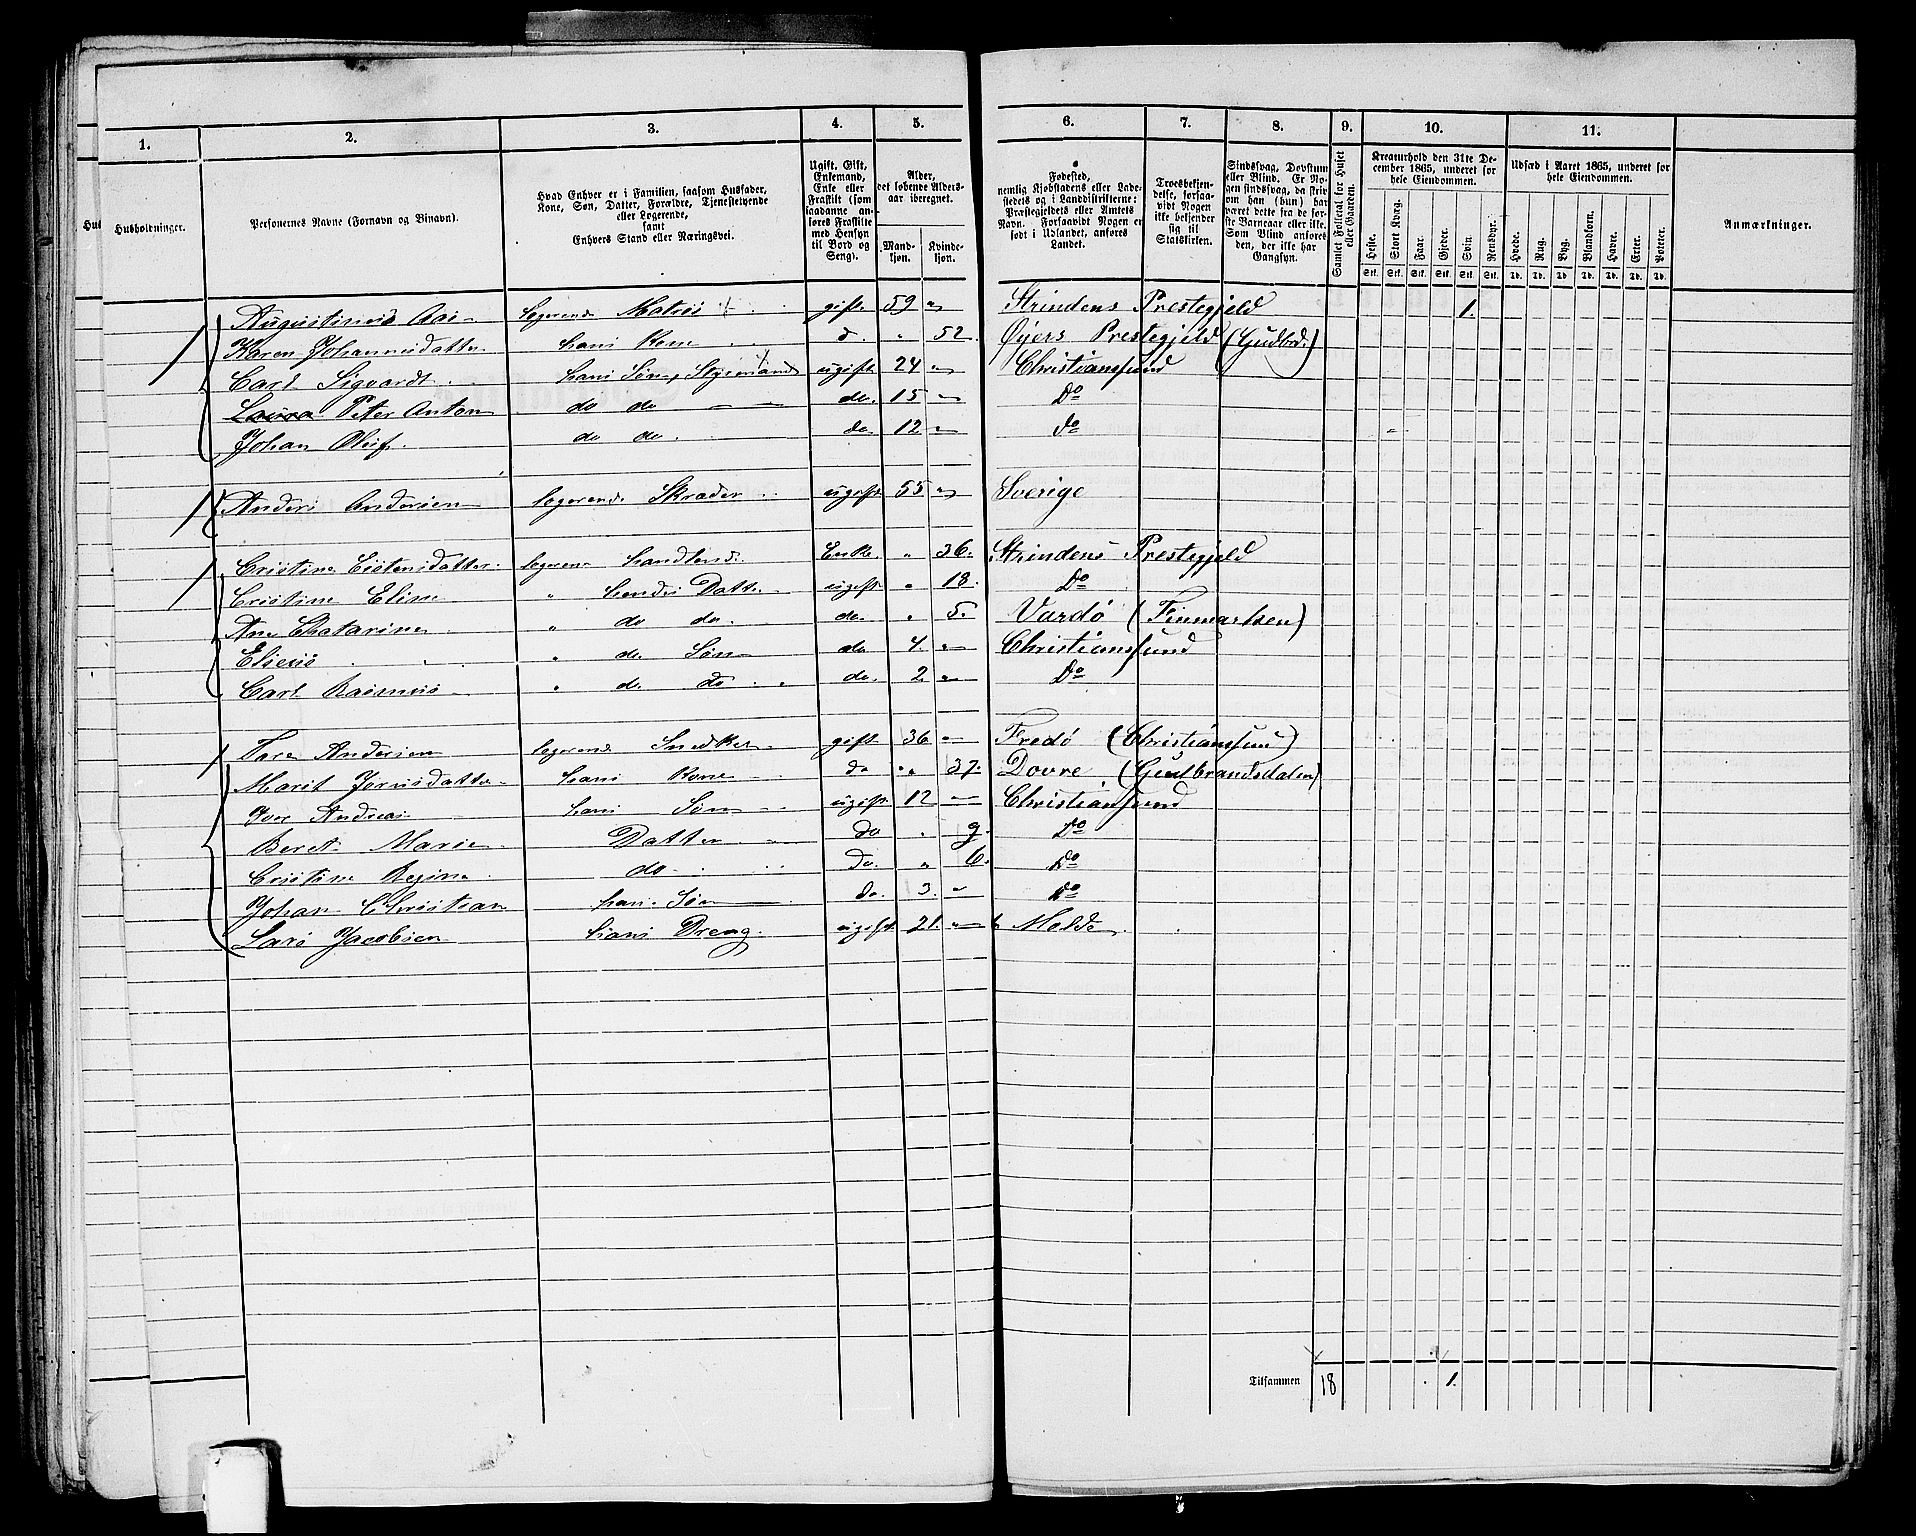 1. 2. 3. 4. 5. 6. 7. 8. 9. 10. 11.
Husholdninger.
Personernes Navne (Fornavn og Binavn).
Hvad Enhver er i Familien, saasom Husfader, Kone, Søn, Datter, Forældre, Tjenestetyende eller Logerende, samt Enhvers Stand eller Næringsvei.
Ugift, Gift, Enkemand, Enke eller Fraskilt (som saadanne anføres Fraskilte med Hensyn til Bord og Seng).
Alder, det løbende Aldersaar iberegnet.
Mandkjøn. Kvindekjøn.
Fødested, nemlig Kjøbstadens eller Ladestedets og i Landdistrikterne: Præstegjeldets eller Amtets Navn. Forsaavidt Nogen er født i Udlandet, anføres Landet.
Troesbekjendelse, forsaavidt Nogen ikke bekjender sig til Statskirken.
Sindssvag, Døvstum eller Blind. Er Nogen sindssvag, da skriv om han (hun) har været dette fra de første Barneaar eller ikke. Som Blind anføres den, der ikke har Gangsyn.
Samlet Folketal for Huset eller Gaarden.
Kreaturhold den 31te December 1865, underet for hele Eiendommen.
Heste. Stort Kvæg. Faar. Gjeder. Svin. Rensdyr.
Stk. Stk. Stk. Stk. Stk. Stk.
Udsæd i Aaret 1865, underet for hele Eiendommen.
Hvede. Rug. Byg. Blandkorn. Havre. Erter. Poteter.
Td. Td. Td. Td. Td. Td. Td.
Anmærkninger.
Augustinus Aas logerende Matros gift 59 " Strindens Prestegjeld 1.
Karen Johannesdatter hans Kone d. " 52 Øyers Prestegjeld (Gudbrd.)
Carl Sigvardt hans Søn, Styrmand ugift 24 " Christianssund
Peter Anton do do do. 15 " Do
Johan Oluf do do do 12 " do
Anders Andersen logerende Skræder ugift 55 " Sverige
Cristine Eistensdatter logerende Handlende Enke " 36. Strindens Prestegjeld
Cristine Eline " hendes Datter ugift " 18. Do
Ane Chatarine " do do. do. " 5. Vardø (Finmarken)
Elieus " do. Søn do 4. " Christianssund
Carl Rasmus " do. do. do. 2 " Do
Tore Andersen logerende Snedker gift 36 " Fredø (Christianssund)
Marit Jørnsdatter hans Kone do " 37. Dovre (Gudbrandsdalen)
Iver Andreas hans Søn ugift 12 Christianssund
Beret Marie Datter do " 9. Do
Cristine Regine do. do. " 6. Do
Johan Christian hans Søn do. 3. " Do
Lars Jacobsen hans Dreng. ugift. 21. " Molde
Tilsammen 18 1.